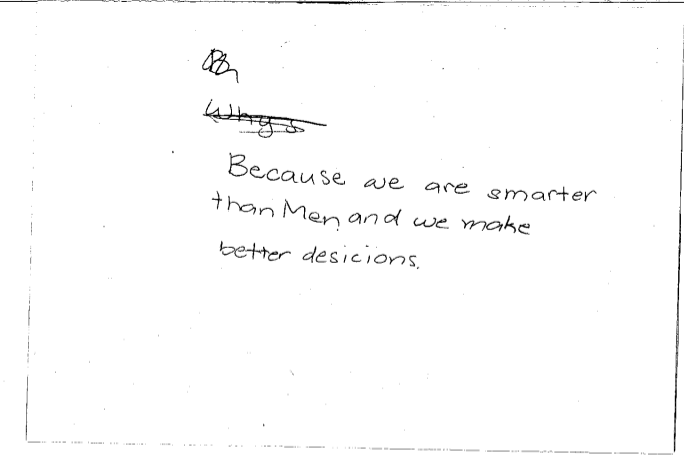 Why
Because we are smarter
than Men and we make
better desicions.